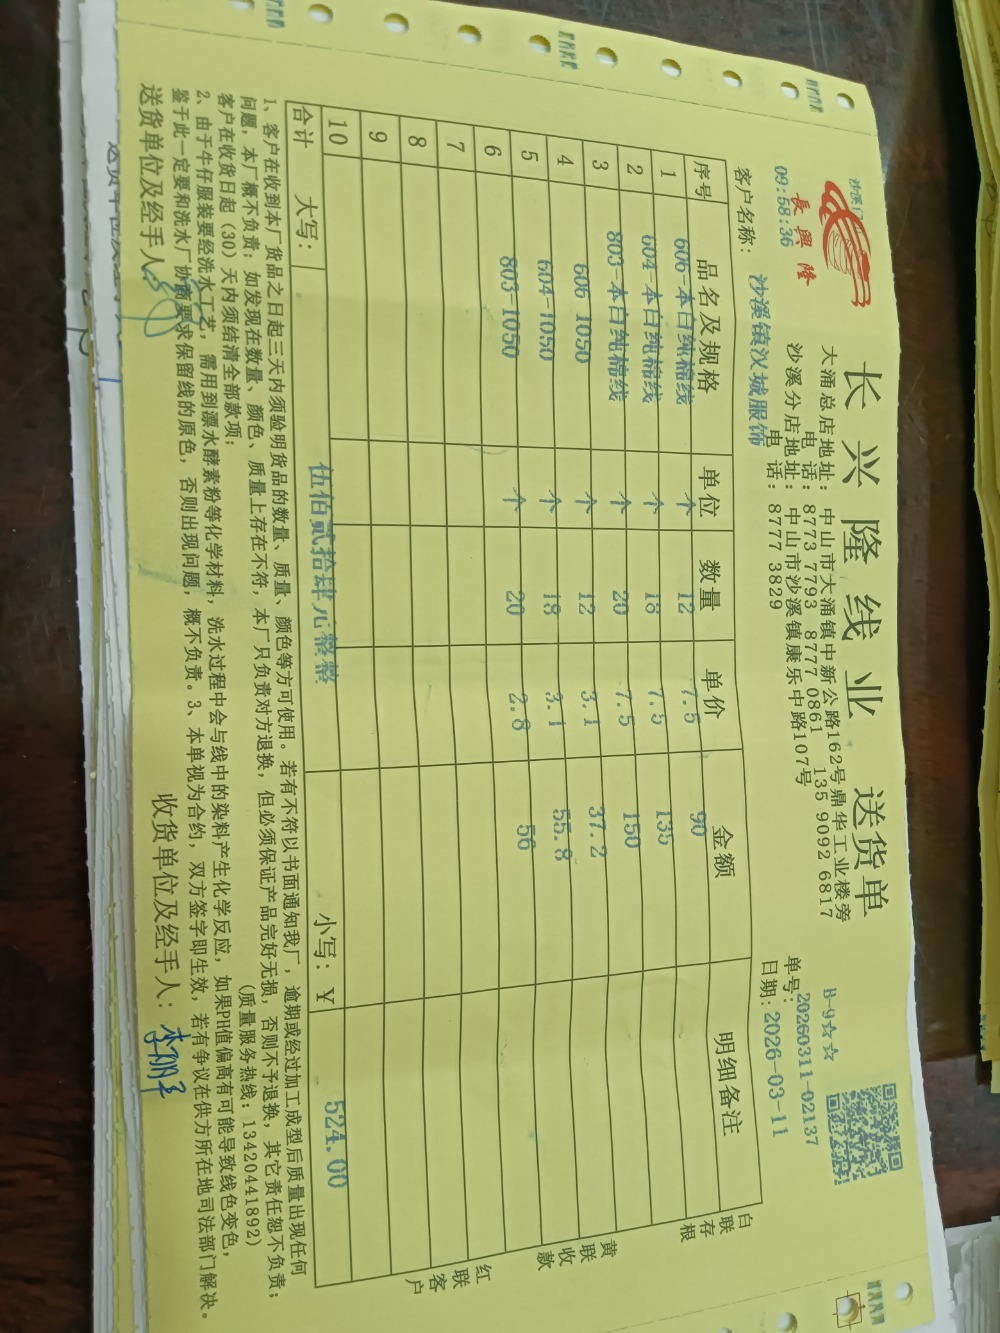 長興隆
沙溪门
09:58:36
长兴隆线业 送货单
大涌总店地址：中山市大涌镇中新公路162号鼎华工业楼旁
电 话：8773 7793 8777 0861 135 9092 6817
沙溪分店地址：中山市沙溪镇康乐中路107号
电 话：8777 3829
B-9☆☆
单号：20260311-02137
日期：2026-03-11
客户名称：沙溪镇汉城服饰
序号 品名及规格 单位 数量 单价 金额 明细备注
1 606-本白纯棉线 个 12 7.5 90
2 604-本白纯棉线 个 18 7.5 135
3 803-本白纯棉线 个 20 7.5 150
4 606 1050 个 12 3.1 37.2
5 604-1050 个 18 3.1 55.8
6 803-1050 个 20 2.8 56
7
8
9
10
合计 大写：伍佰贰拾肆元整整 小写：￥ 524.00
白联存根
黄联收款
红联客户
1、客户在收到本厂货品之日起三天内须验明货品的数量、质量、颜色等方可使用。若有不符以书面通知我厂，逾期或经过加工成型后质量出现任何
问题，本厂概不负责；如发现在数量、颜色、质量上存在不符，本厂只负责对方退换，但必须保证产品完好无损，否则不予退换，其它责任恕不负责；
客户在收货日起（30）天内须结清全部款项； (质量服务热线：13420441892)
2、由于牛仔服装要经洗水工艺，需用到漂水酵素粉等化学材料，洗水过程中会与线中的染料产生化学反应，如果PH值偏高有可能导致线色变色，
鉴于此一定要和洗水厂协商要求保留线的原色，否则出现问题，概不负责。3、本单视为合约，双方签字即生效，若有争议在供方所在地司法部门解决。
送货单位及经手人：
收货单位及经手人：